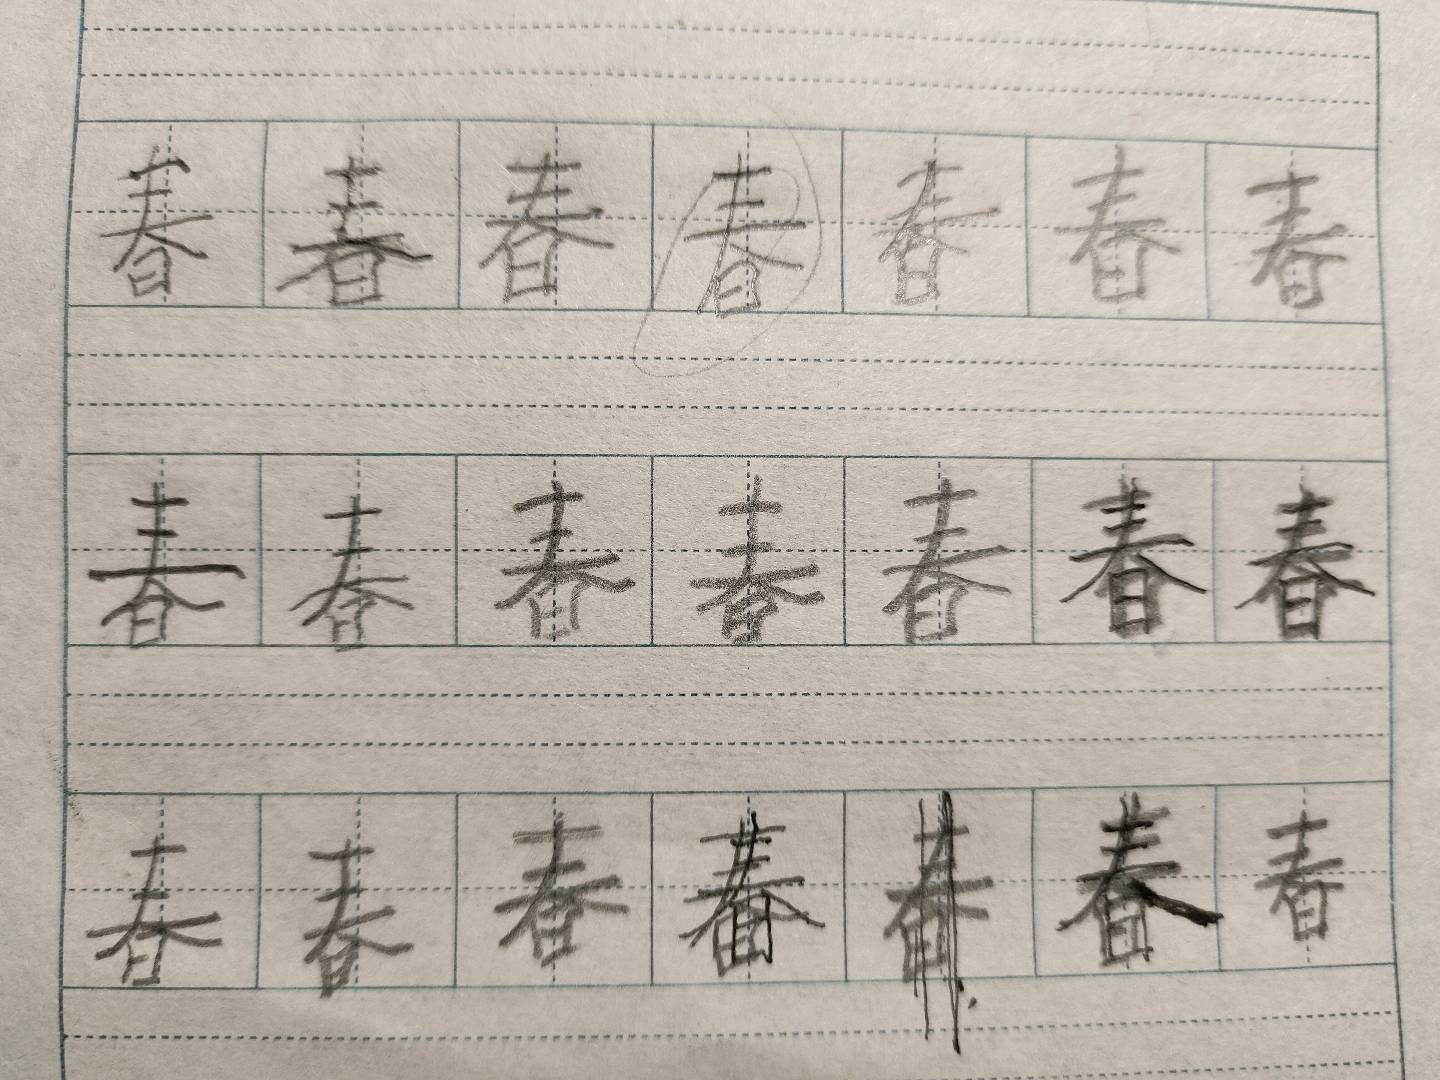 春春春春春春春
春春春春春春春
春春春春春春春